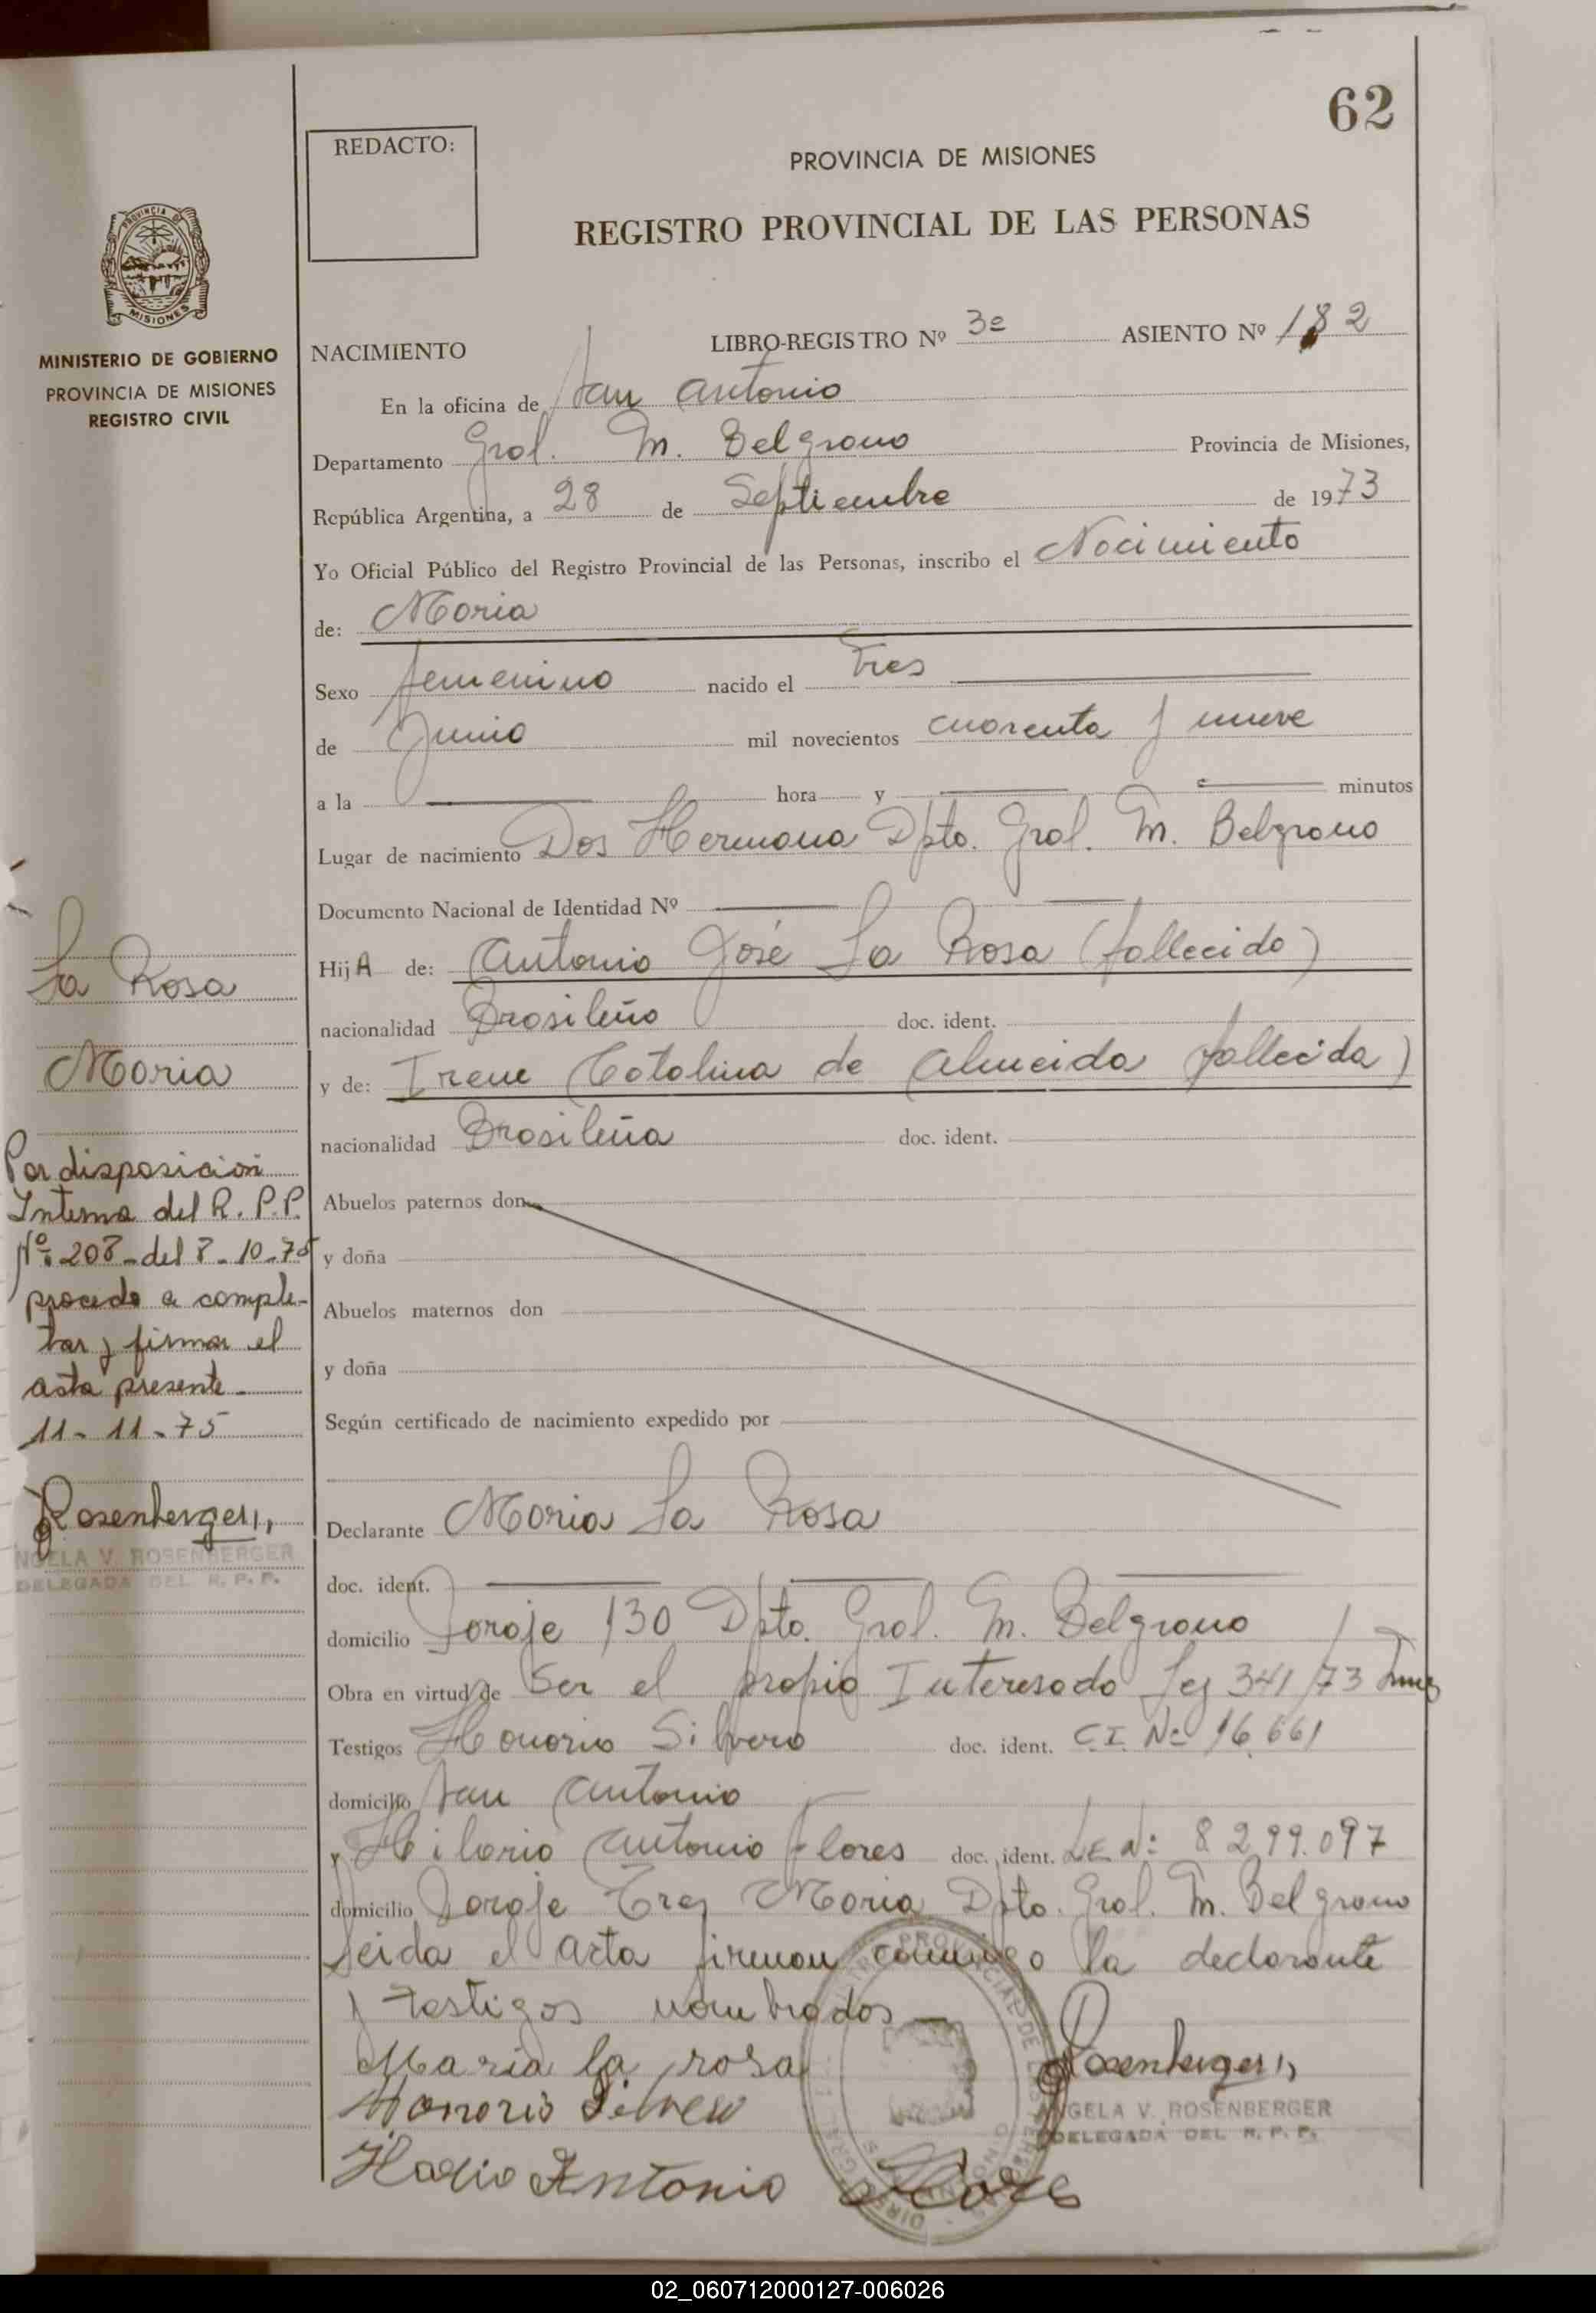 62
REDACTO:
PROVINCIA DE MISIONES
REGISTRO PROVINCIAL DE LAS PERSONAS
PROVINCIA DE
MISIONES
MINISTERIO DE GOBIERNO
PROVINCIA DE MISIONES
REGISTRO CIVIL
NACIMIENTO LIBRO-REGISTRO Nº 3º ASIENTO Nº 182
En la oficina de San Antonio
Departamento Gral. M. Belgrano Provincia de Misiones,
República Argentina, a 28 de Septiembre de 1973
Yo Oficial Público del Registro Provincial de las Personas, inscribo el Nacimiento
de: Maria
Sexo femenino nacido el Tres
de Junio mil novecientos cuarenta y nueve
a la hora y minutos
Lugar de nacimiento Dos Hermana Dpto. Gral. M. Belgrano
Documento Nacional de Identidad Nº
HijA de: Antonio José La Rosa (fallecido)
nacionalidad Brasileño doc. ident.
y de: Irene Catalina de Almeida fallecida)
nacionalidad Brasileña doc. ident.
Abuelos paternos don
y doña
Abuelos maternos don
y doña
Según certificado de nacimiento expedido por
Declarante Maria La Rosa
doc. ident.
domicilio Paraje 130 Dpto. Gral. M. Belgrano
Obra en virtud de Ser el propio Interesado Ley 341/73
Testigos Honorio Silvero doc. ident. C.I. Nº 16.661
domicilio San Antonio
y Hilario Antonio Flores doc. ident. L.E. Nº: 8299.097
domicilio Paraje Tres Maria Dpto. Gral. M. Belgrano
Leida el acta firman conmigo la declarante
y testigos nombrados
Maria la rosa
Honorio Silvero
Antonio Flores
Rosenberger
ANGELA V. ROSENBERGER
DELEGADA DEL R. P. P.
La Rosa
Maria
Por disposición
Interna del R. P. P.
Nº: 208 - del 8 - 10 - 75
procedo a comple-
tar y firmar el
acta presente
11 - 11 - 75
Rosenberger
NGELA V. ROSENBERGER
DELEGADA DEL R. P. P.
02_060712000127-006026